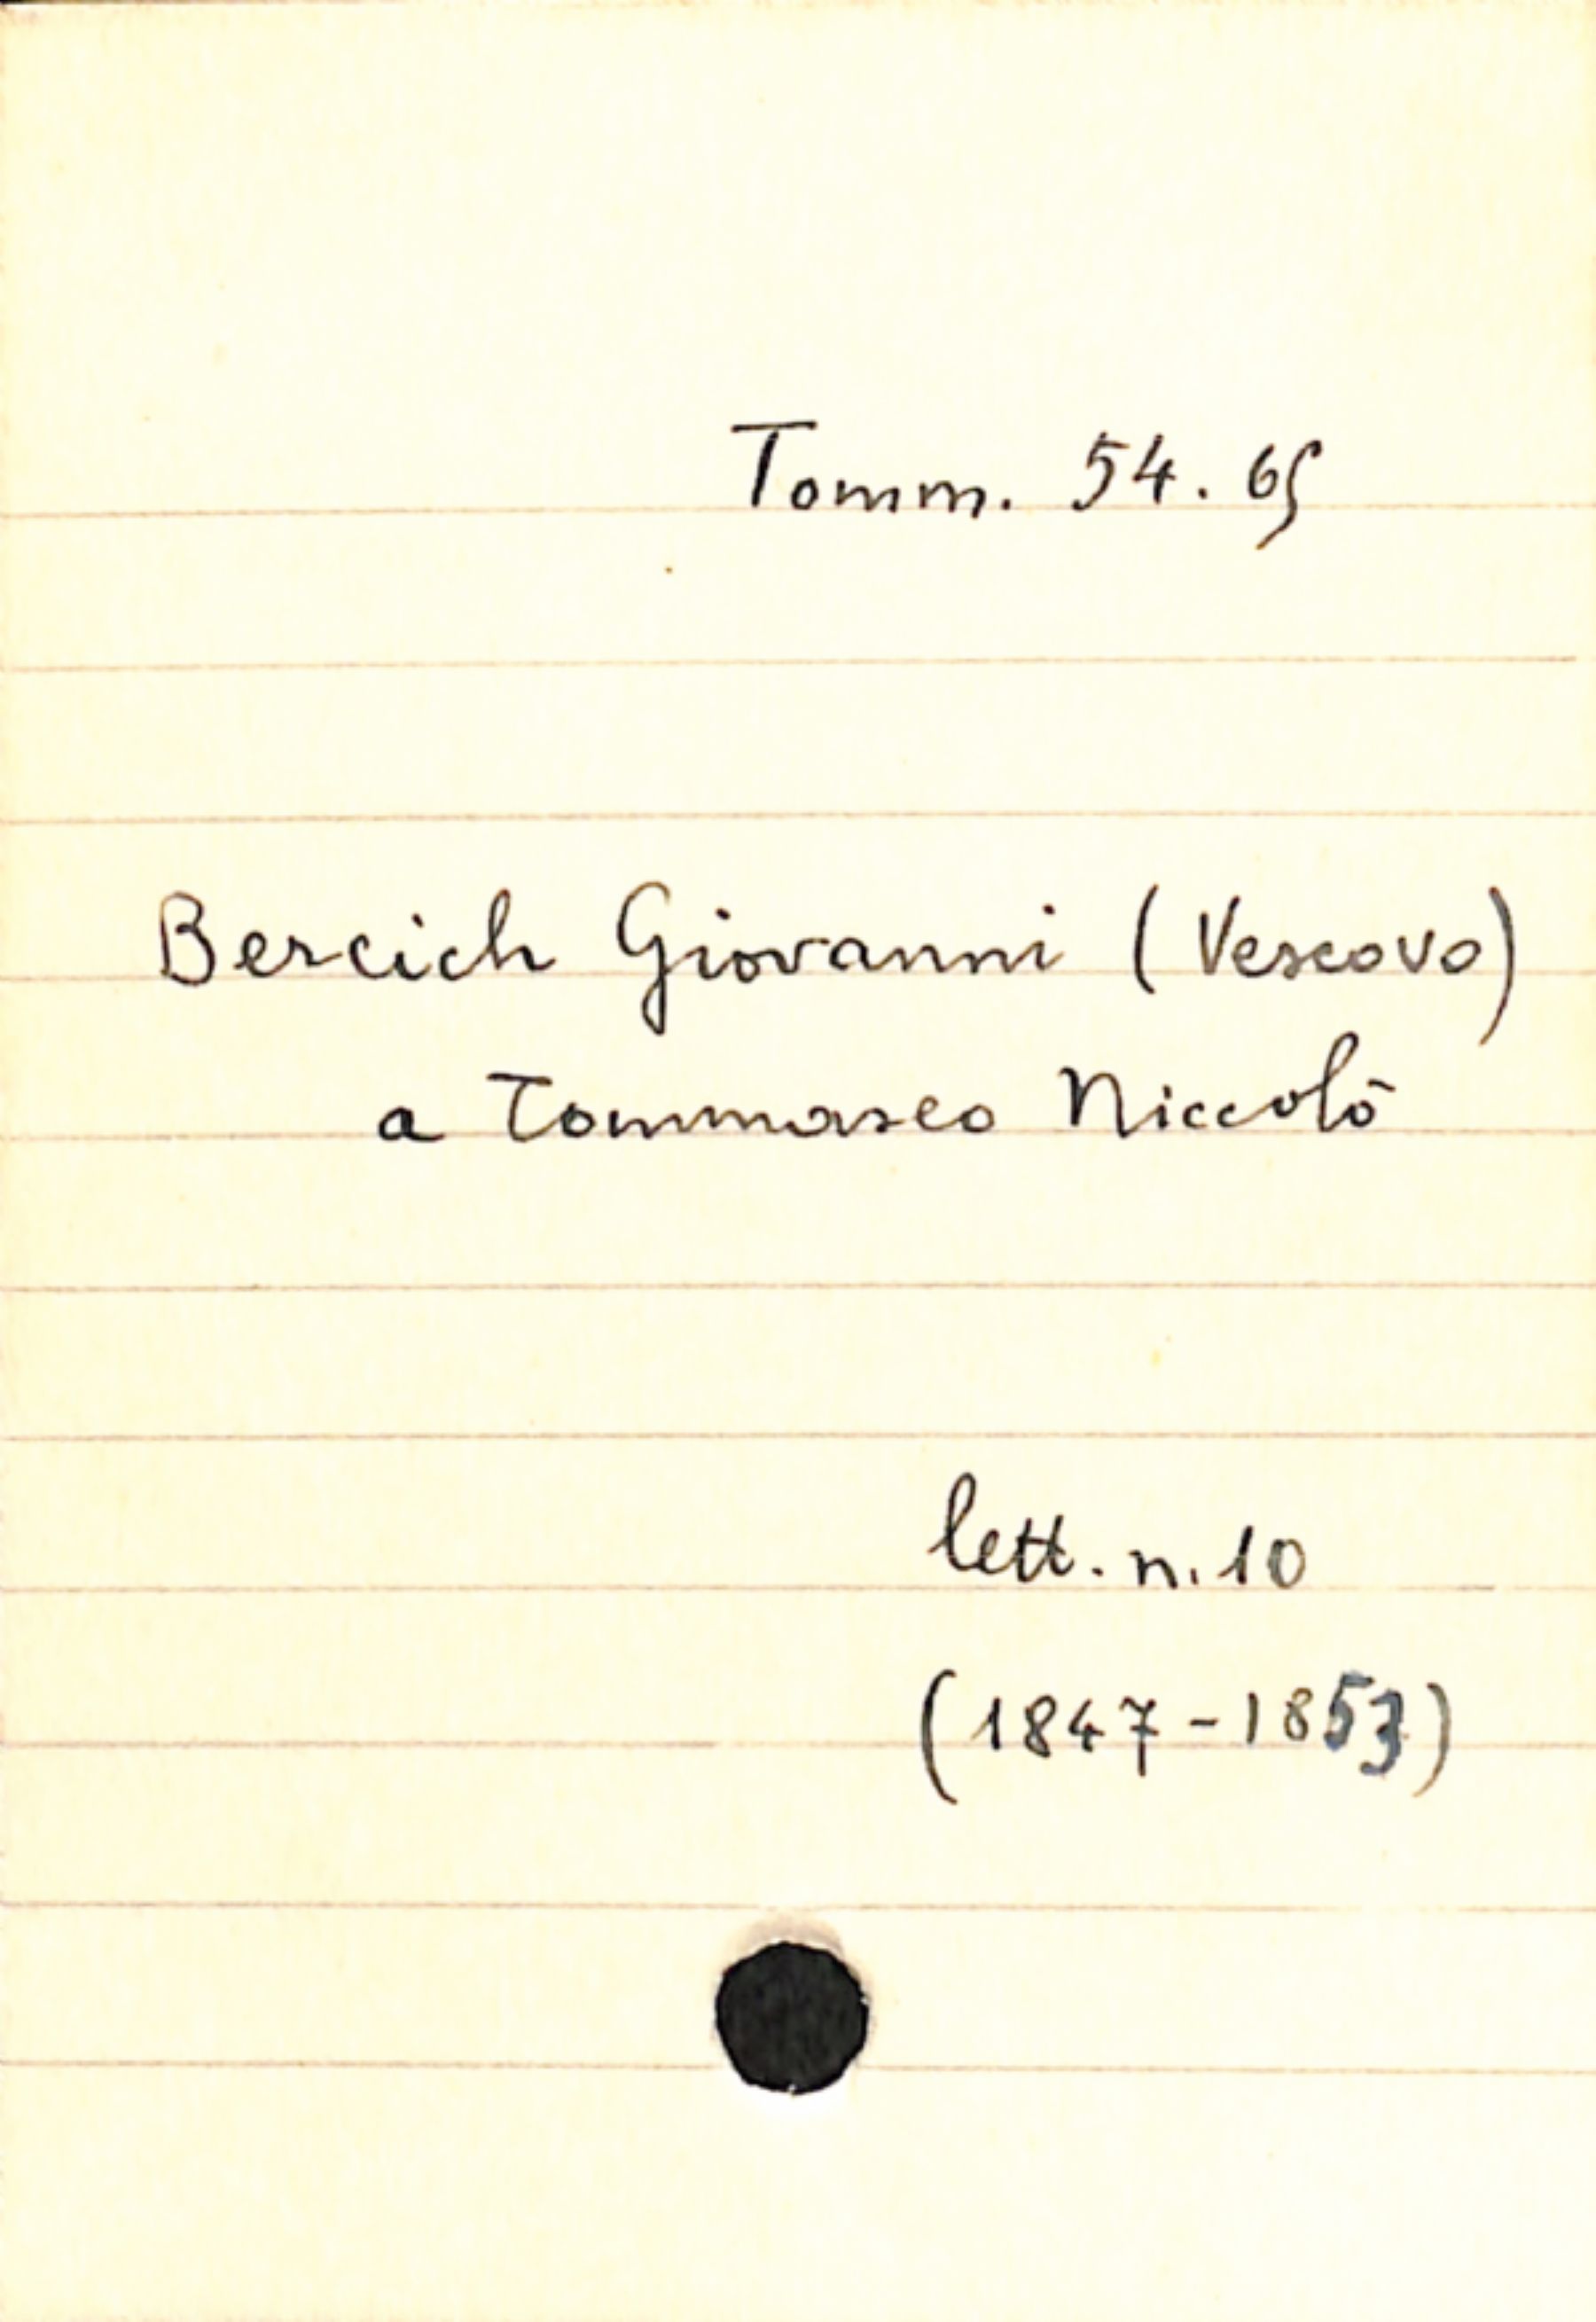 Tomm. 54. 65
Bercich Giovanni (Vescovo)
a Tommaseo Niccolò
lett. n. 10
(1847-1853)